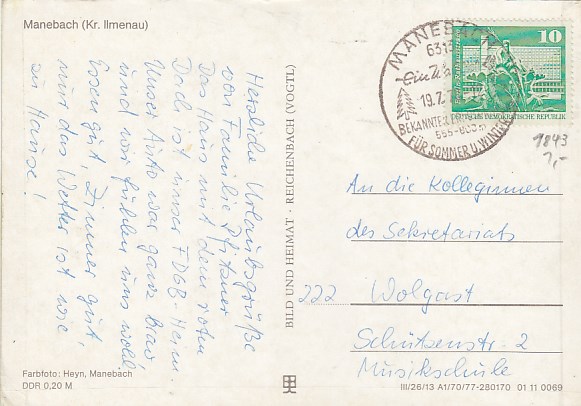 Manebach (Kr. Ilmenau)
Herzliche Urlaubsgrüße
von Familie Pfitzner
Das Haus mit dem roten
Dach ist unser FDGB-Heim.
Unser Auto war ganz brav
und wir fühlen uns wohl!
Essen gut, Zimmer gut,
nur das Wetter ist wie
zu Hause!
Farbfoto: Heyn, Manebach
DDR 0,20 M
BILD UND HEIMAT · REICHENBACH (VOGTL)
MANEBACH
19.7.
BEKANNTER
555-800m
FÜR SOMMER U. WINTER
10
DEUTSCHE DEMOKRATISCHE REPUBLIK
9843
An die Kolleginnen
des Sekretariats
222 Wolgast
Schützenstr. 2
Musikschule
III/26/13 A1/70/77-280170 01 11 0069